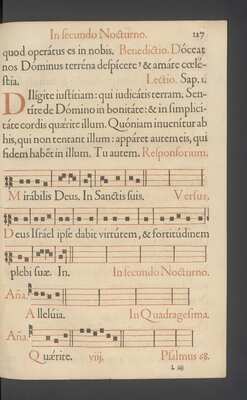 In secundo Nocturno. 127
quod operátus es in nobis. Benedictio. Dóceat
nos Dóminus terréna despícere & amáre cœlé-
stia. Lectio. Sap. 1.
DIligite iustítiam: qui iudicátis terram. Sen-
títe de Dómino in bonitáte: & in simplici-
táte cordis quǽrite illum. Quóniam invenítur ab
his, qui non tentant illum: appáret autem eis, qui
fidem habét in illum. Tu autem. Responsorium.
Mirábilis Deus. In Sanctis suis. Versus.
Deus Israel ipse dabit virtútem, & fortitúdinem
plebi suæ. In. In secundo Nocturno.
Aña.
Allelúia. In Quadragesima.
Aña.
Quǽrite. viij. Psalmus 68.
L iij